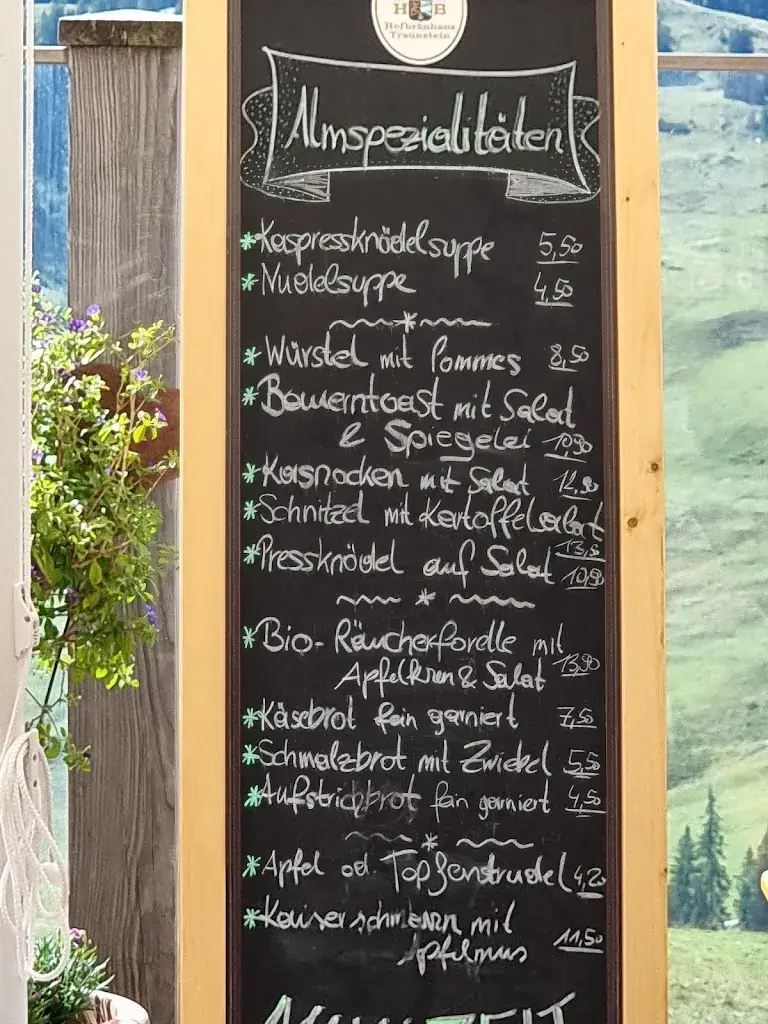 H B
Hofbräuhaus
Traunstein
Almspezialitäten
*Kaspressknödelsuppe 5,50
*Nudelsuppe 4,50
*Würstel mit Pommes 8,50
*Bauerntoast mit Salat
& Spiegelei 10,90
*Kasnocken mit Salat 12,90
*Schnitzel mit Kartoffelsalat
13,5
*Pressknödel auf Salat 10,90
*Bio-Räucherforelle mit
Apfelkren & Salat 13,90
*Käsebrot fein garniert 7,50
*Schmalzbrot mit Zwiebel 5,50
*Aufstrichbrot fein garniert 4,50
*Apfel od. Topfenstrudel 4,20
*Kaiserschmarrn mit
Apfelmus 11,50